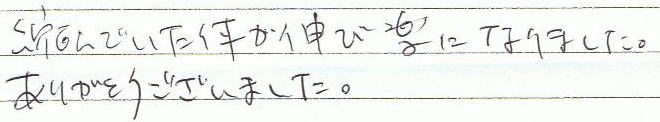 縮んでいた体が伸び楽になりました。
ありがとうございました。